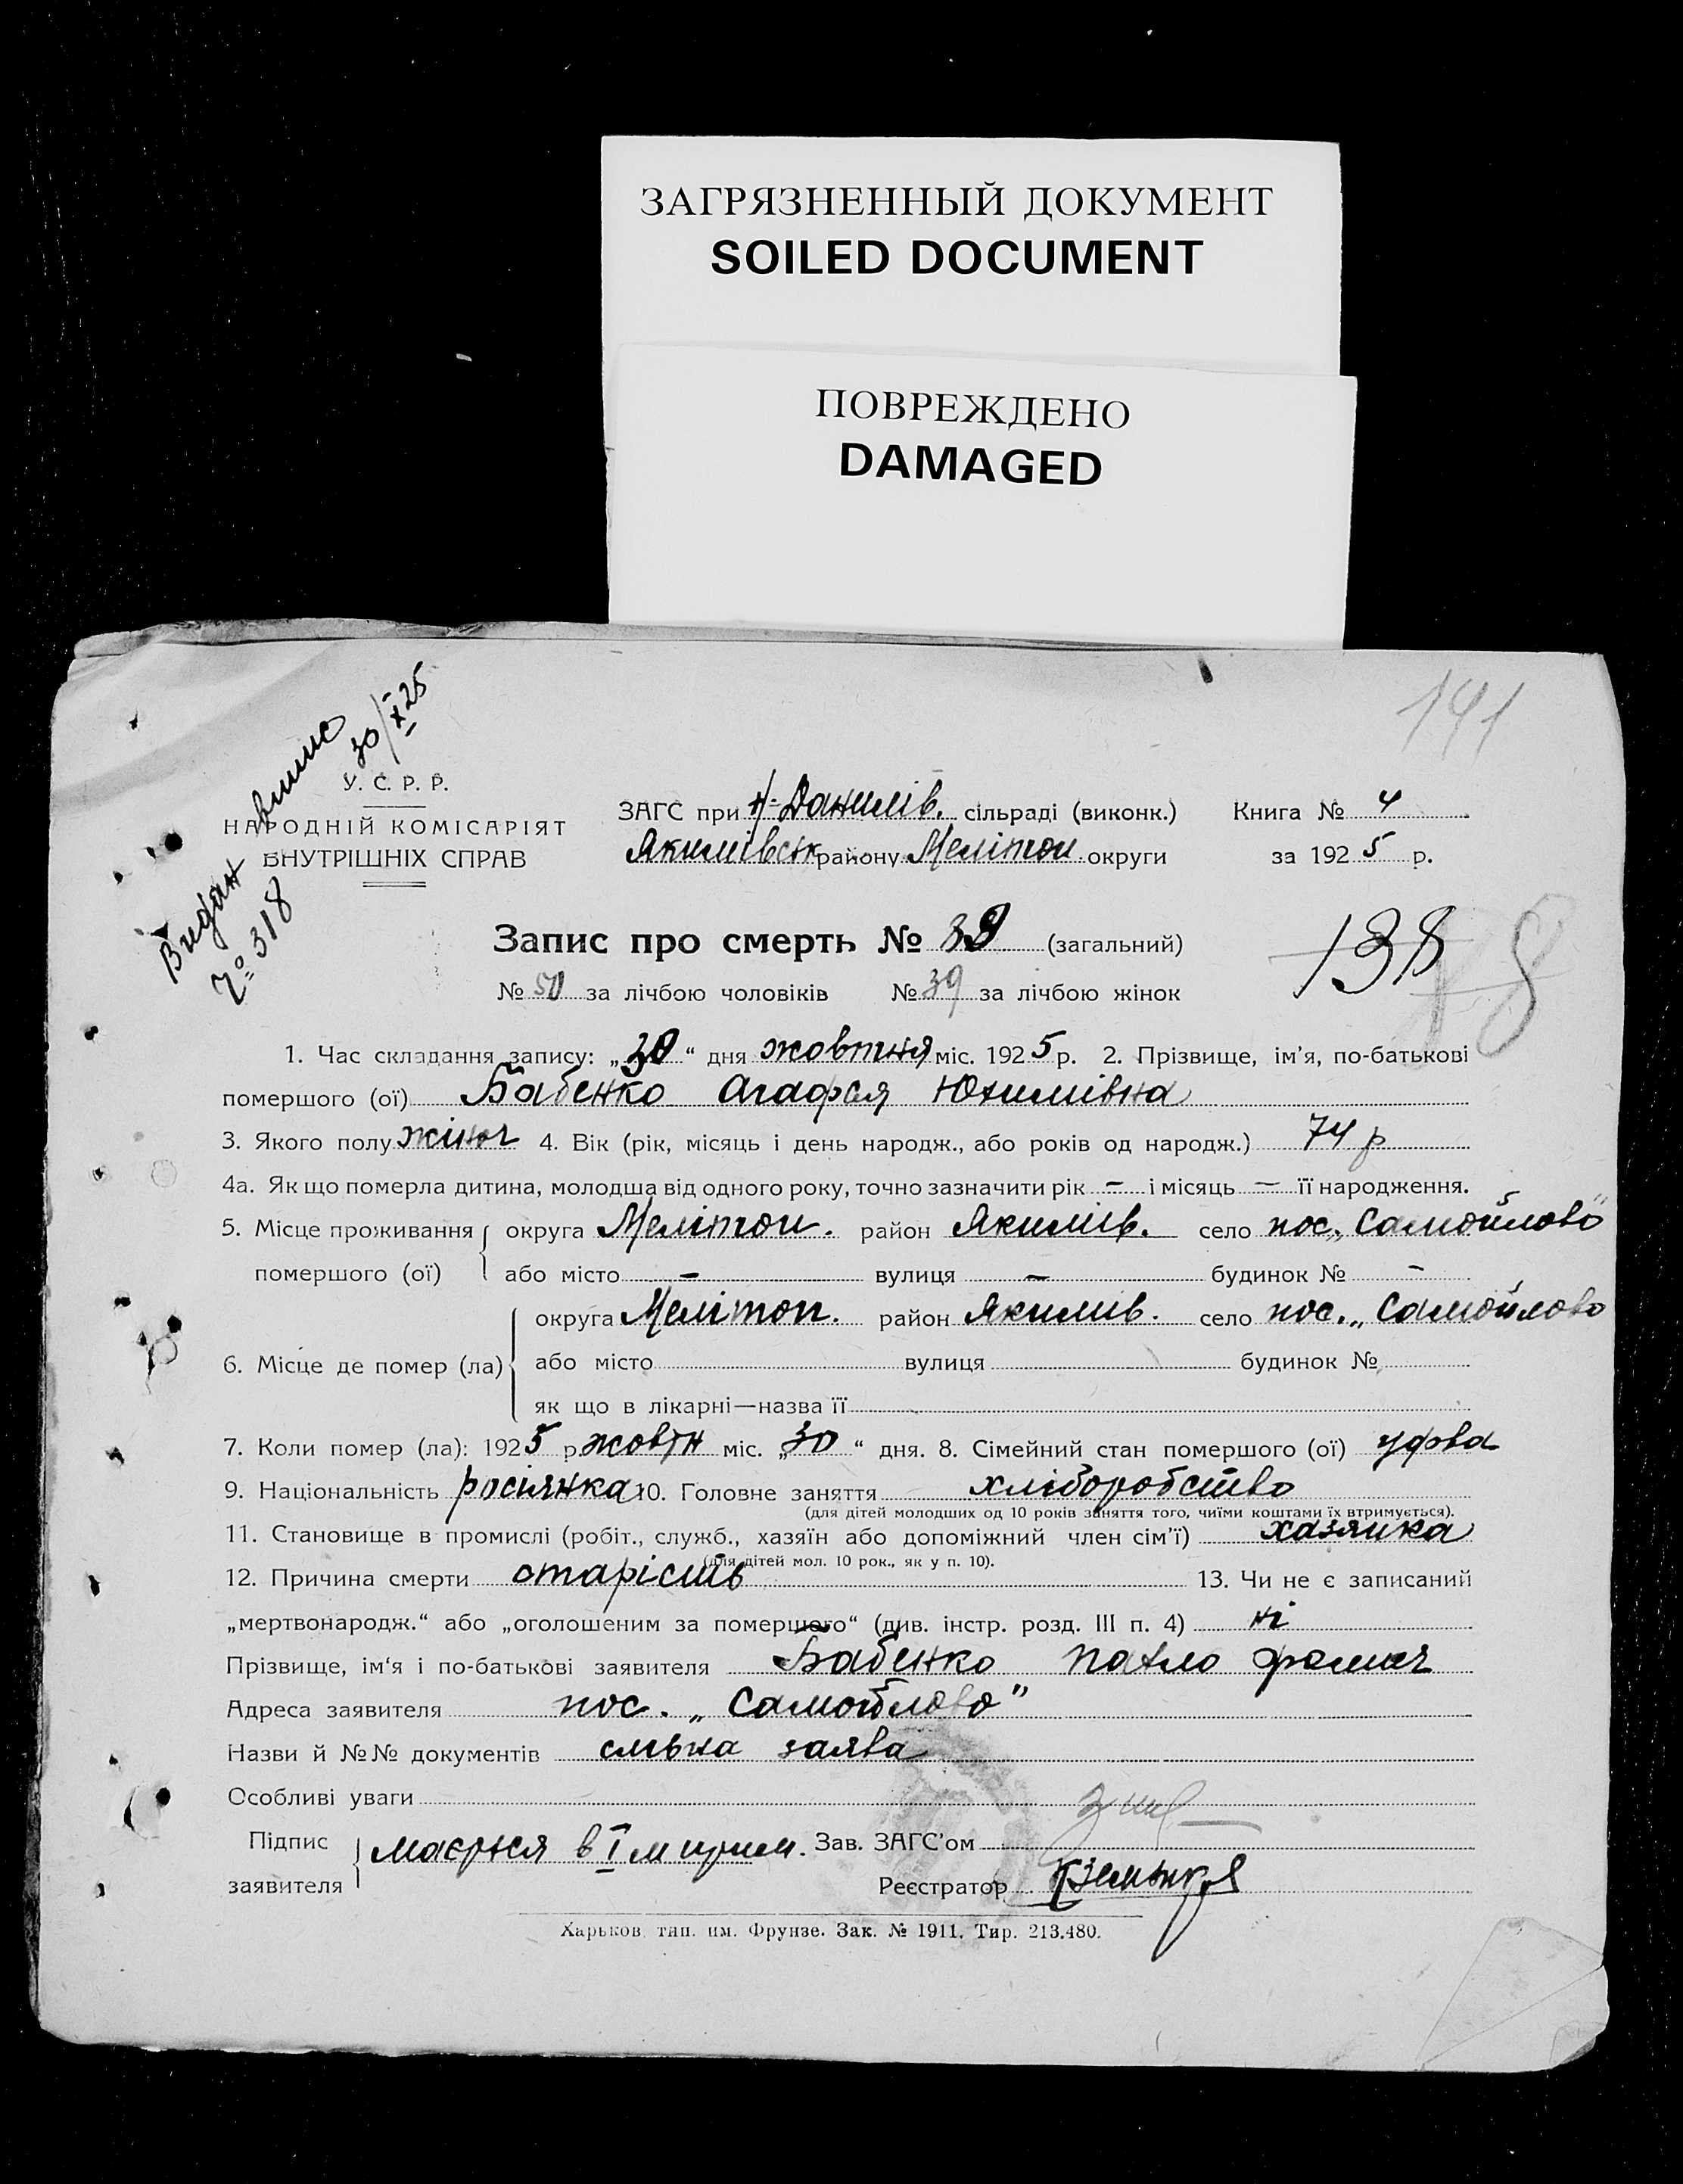 ЗАГРЯЗНЕННЫЙ ДОКУМЕНТ
SOILED DOCUMENT
ПОВРЕЖДЕНО
DAMAGED
141
Видан випис 30/X 25
№ 318
У. С. Р. Р.
НАРОДНІЙ КОМІСАРІЯТ
ВНУТРІШНІХ СПРАВ
ЗАГС при Н-Данилів. сільраді (виконк.) Книга № 4
Якимівськ району Мелітоп округи за 1925 р.
Запис про смерть № 39 (загальний)
138
№ 50 за лічбою чоловіків № 39 за лічбою жінок
1. Час складання запису: „30“ дня жовтня міс. 1925 р. 2. Прізвище, ім’я, по-батькові
помершого (ої) Бабенко Агафья Юхимівна
3. Якого полу жіноч 4. Вік (рік, місяць і день народж., або років од народж.) 74 р
4а. Як що померла дитина, молодша від одного року, точно зазначити рік – і місяць – її народження.
5. Місце проживання округа Мелітоп. район Якимів. село пос. „Самойлово“
помершого (ої) або місто – вулиця – будинок № –
округа Мелітоп. район Якимів. село пос. „Самойлово
6. Місце де помер (ла) або місто вулиця будинок №
як що в лікарні—назва її
7. Коли помер (ла): 1925 р. жовтн міс. „30“ дня. 8. Сімейний стан помершого (ої) удова
9. Національність росіянка 10. Головне заняття хліборобство
(для дітей молодших од 10 років заняття того, чиїми коштами їх втримується).
11. Становище в промислі (робіт., служб., хазяїн або допоміжний член сім’ї) хазяйка
(для дітей мол. 10 рок., як у п. 10).
12. Причина смерти старість 13. Чи не є записаний
„мертвонародж.“ або „оголошеним за помершого“ (див. інстр. розд. III п. 4) ні
Прізвище, ім‘я і по-батькові заявителя Бабенко Павло Фомич
Адреса заявителя пос. „Самойлово"
Назви й №№ документів заява
Особливі уваги
Підпис заявителя мається в І м Зав. ЗАГС’ом
Реєстратор
Харьков, тип. им. Фрунзе. Зак. № 1911. Тир. 213.480.